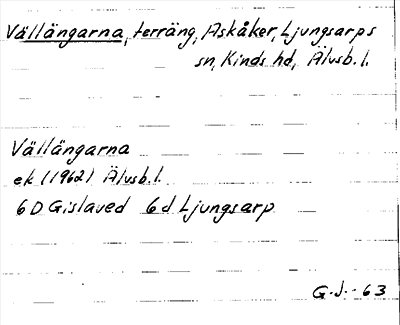 Vällängarna, terräng, Askåker, Ljungsarps
sn, Kinds hd, Älvsb. l.
Vällängarna
ek (1962) Älvsb. l.
6 D Gislaved 6 d Ljungsarp
G. J. - 63